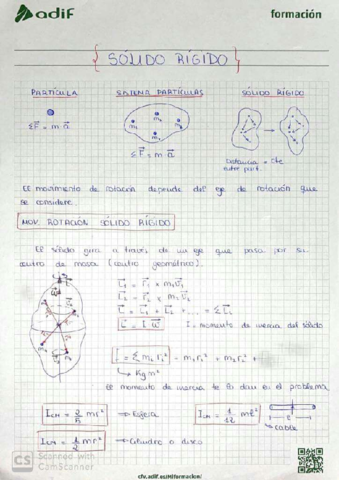 adif
formación
SÓLIDO RÍGIDO
PARTÍCULA
SISTEMA PARTÍCULAS
SÓLIDO RÍGIDO
ΣF⃗ = m·a⃗
ΣF⃗ = m·a⃗
Distancia = cte
entre part.
El movimiento de rotación depende del eje de rotación que
se considere.
MOV. ROTACIÓN SÓLIDO RÍGIDO
El sólido gira a través de un eje que pasa por su
centro de masa (centro geométrico).
L⃗₁ = r⃗₁ × m₁v⃗₁
L⃗₂ = r⃗₂ × m₂v⃗₂
L⃗ = L⃗₁ + L⃗₂ + ... = ΣL⃗ᵢ
L⃗ = I·ω⃗
I = momento de inercia del sólido
I = Σmᵢrᵢ² = m₁r₁² + m₂r₂² +
Kg m²
El momento de inercia te lo dan en el problema
I_CM = 2/5 mr² → Esfera
I_CM = 1/12 mℓ²
ℓ
I_CM = 1/2 mr² → Cilindro o disco
CS Scanned with
CamScanner
cfv.adif.es/stiformacion/